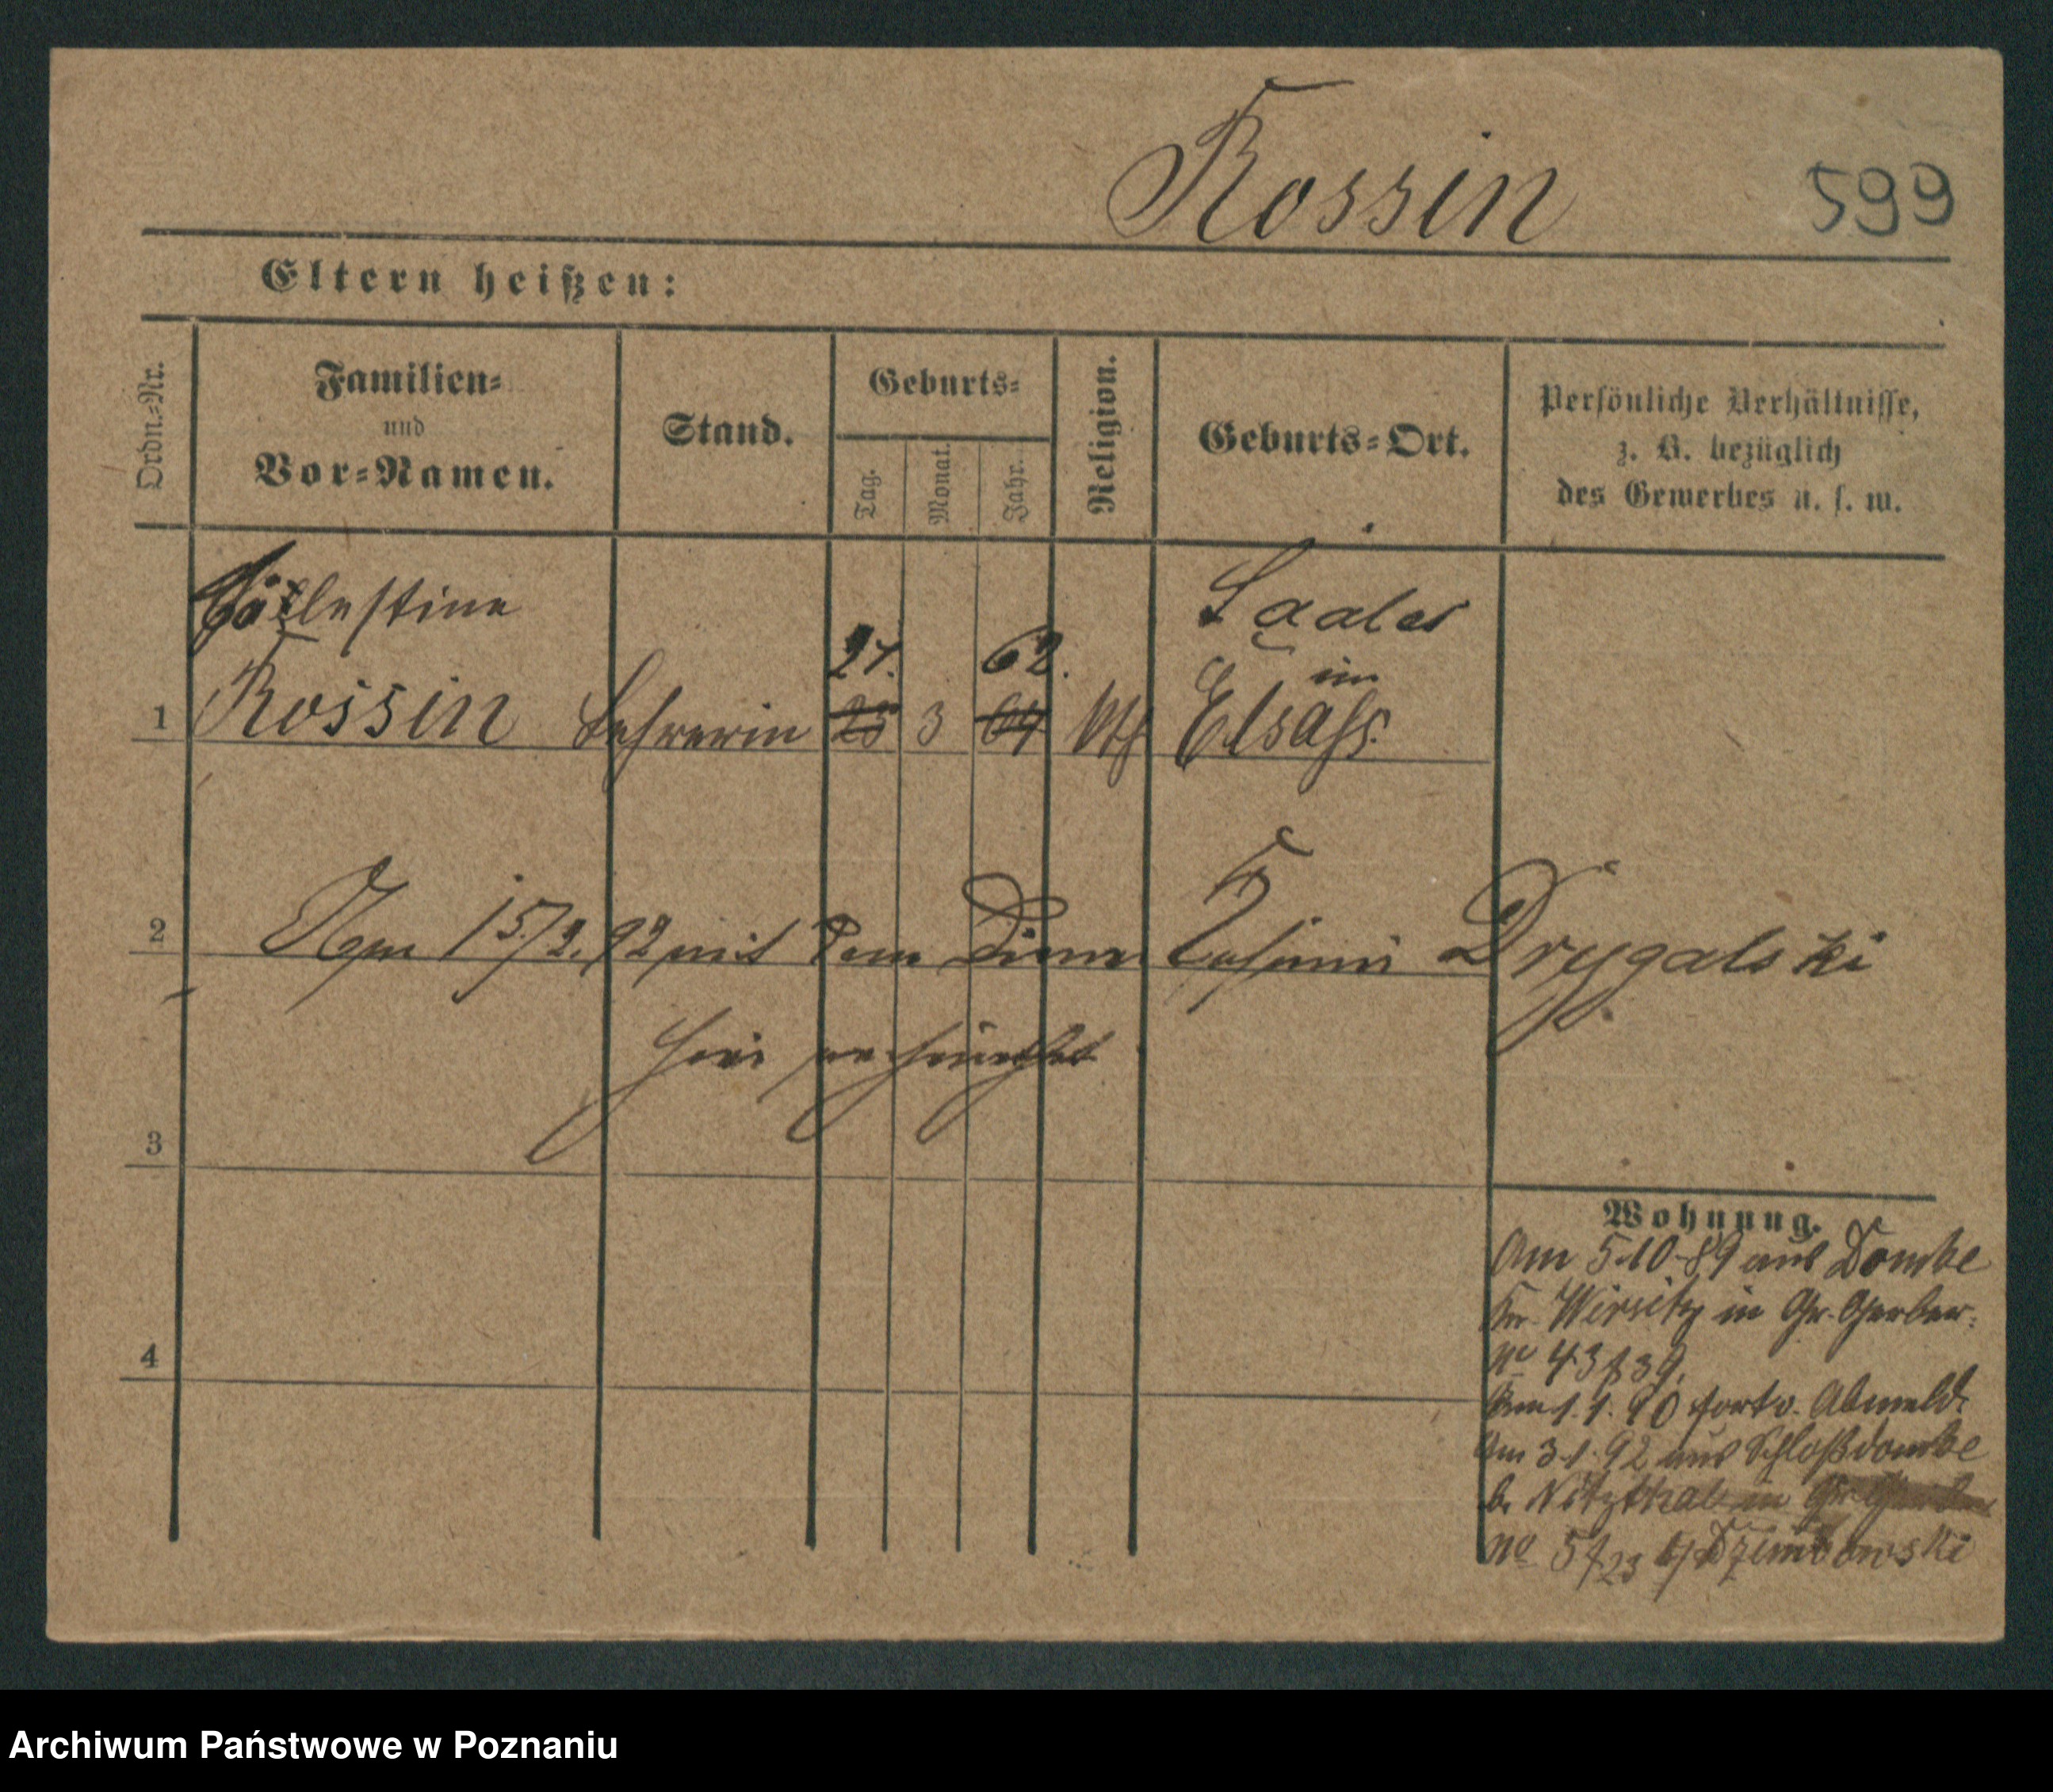 Rossin 599
Eltern heißen:
Ordn.-Nr. Familien- und Vor-Namen. Stand. Geburts- Tag. Monat. Jahr. Religion. Geburts-Ort. Persönliche Verhältnisse, z. B. bezüglich des Gewerbes u. s. w.
Cölestine Saales
21. 62. im
1 Rossin Lehrerin 25 3 64 kth Elsaß
2 Am 15/2.92 mit dem Diener Casimir Drygalski
hier verheirathet
3
4
Wohnung.
Am 5.10.89 aus Dombe
Kr. Wirsitz in Gr. Gerber.
No 43 f 39.
Am 1.1.90 fort v. Abmeld.
Am 3.1.92 aus Schloßdombe
b. Nitzthal in Gr. Gerber
No 5 f 23 b/ Dziembowski
Archiwum Państwowe w Poznaniu